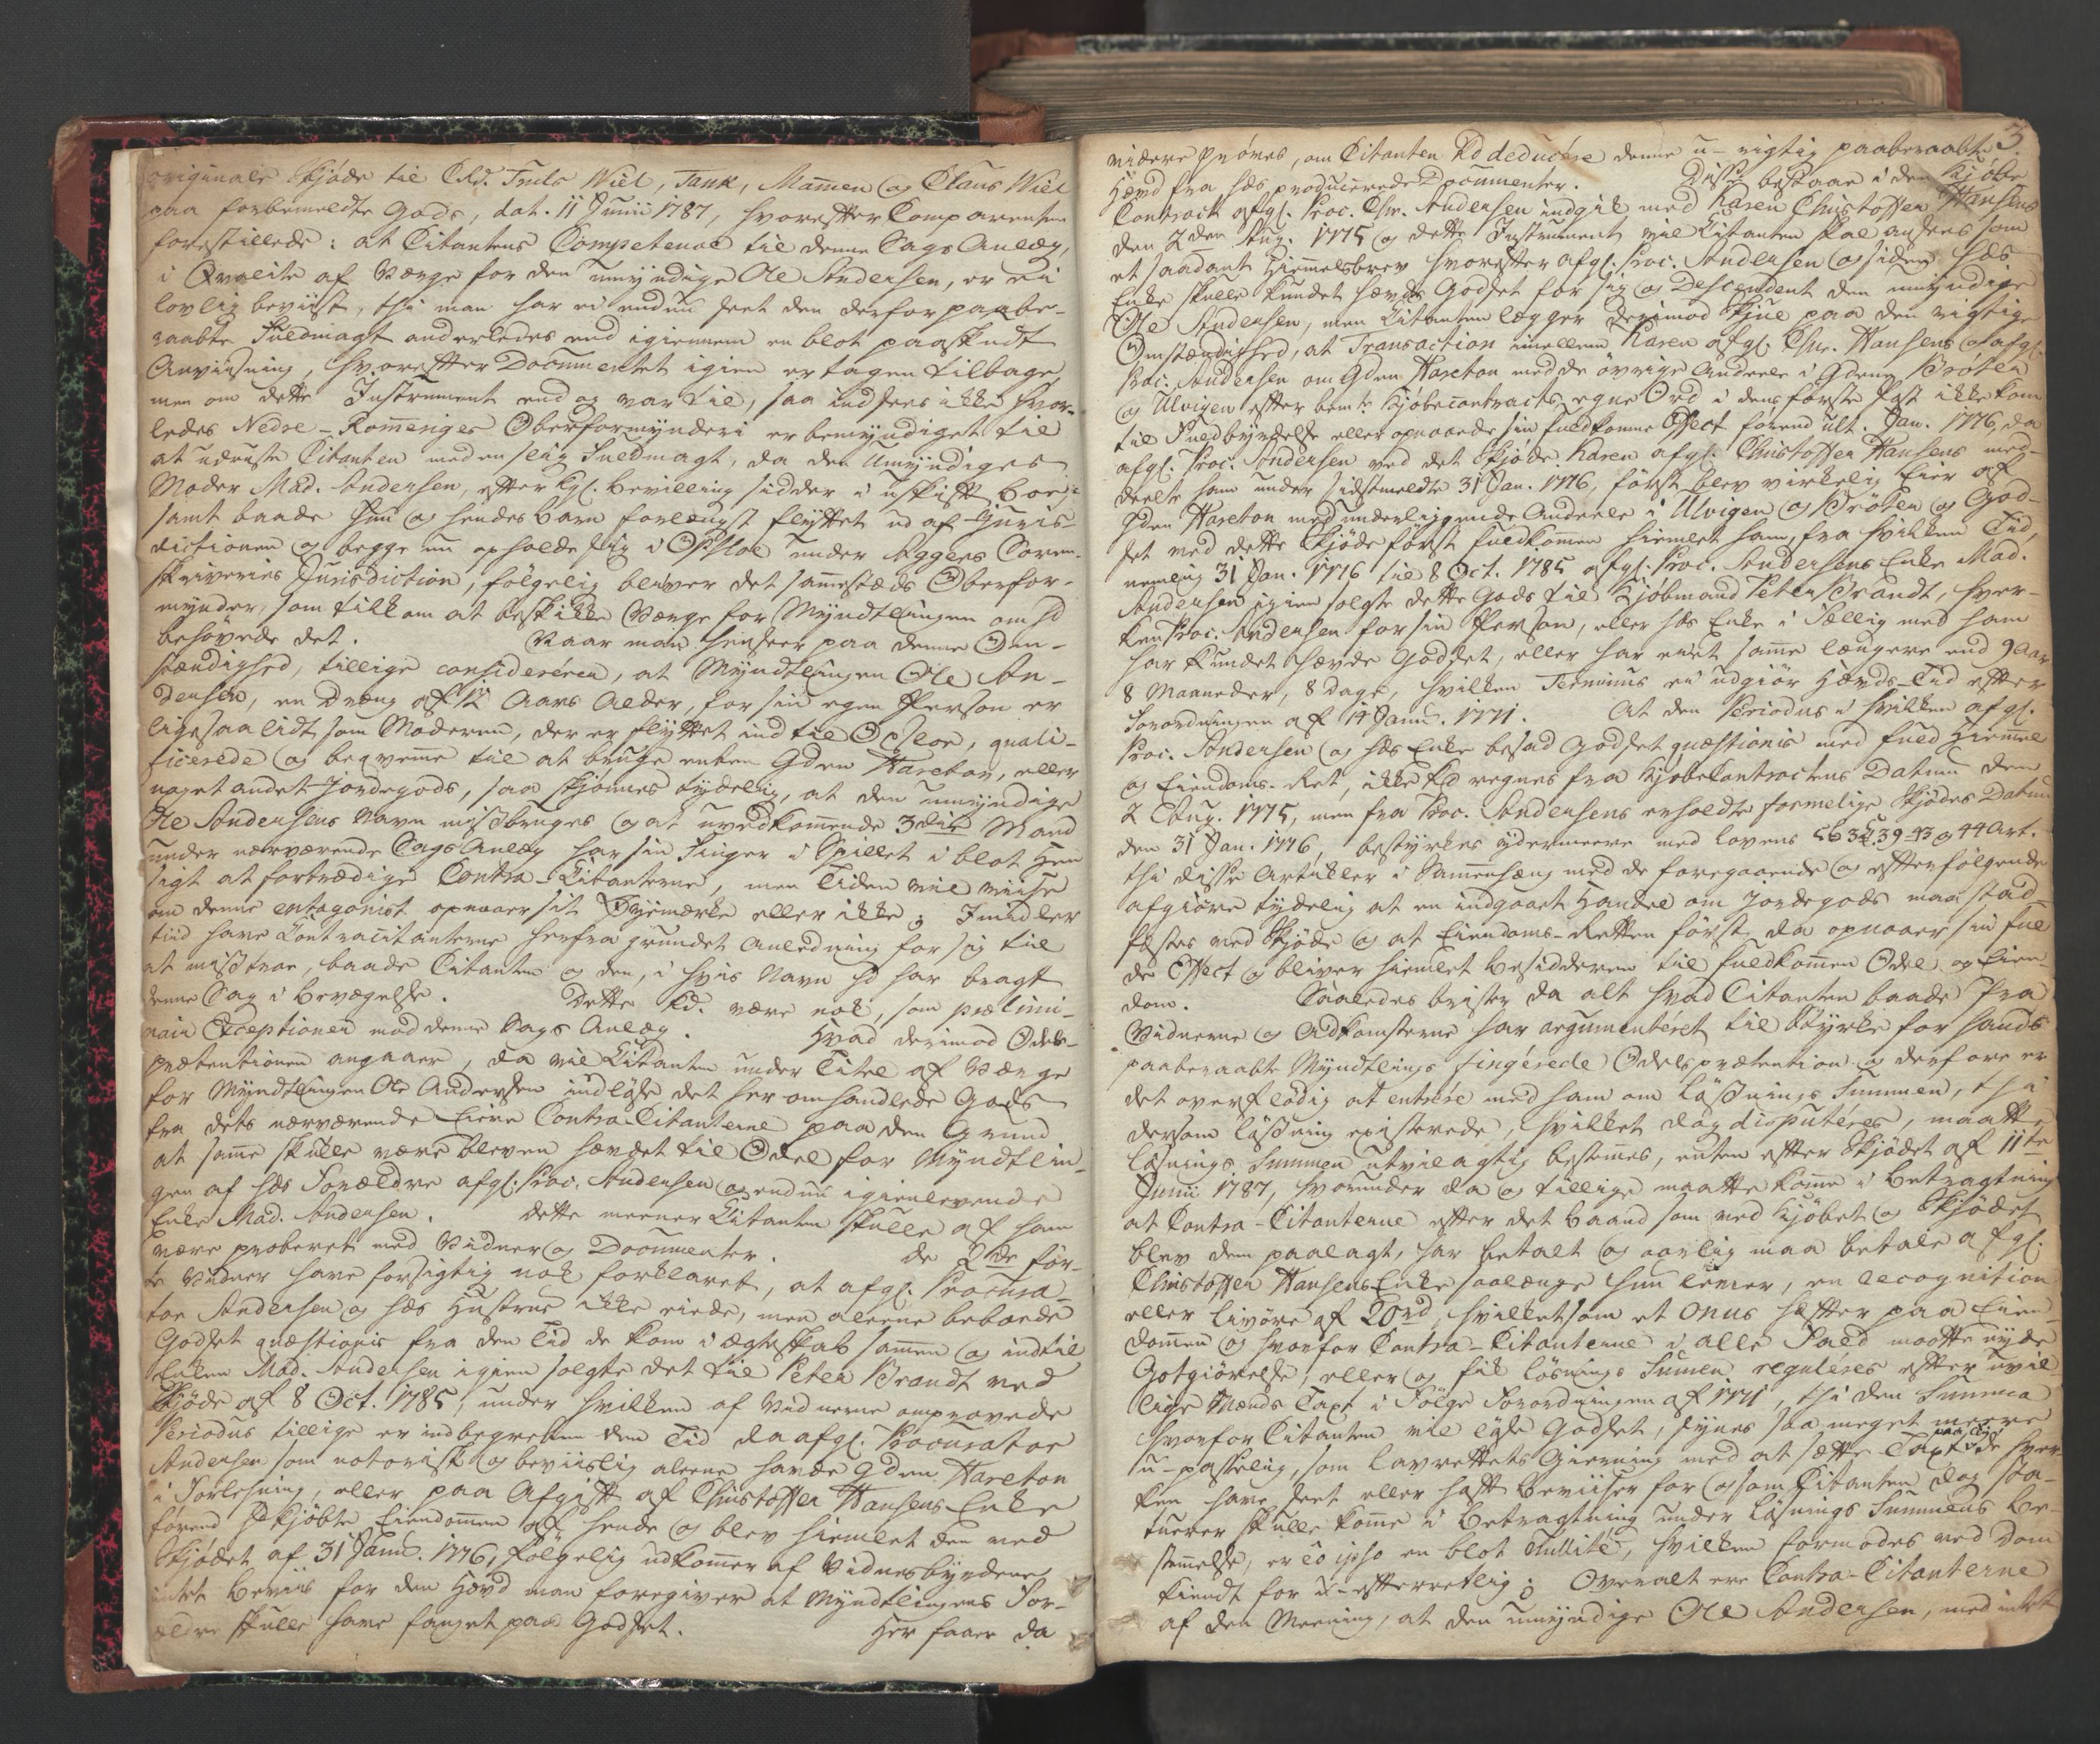 originale Skjøde til Etr. Truls Wiel, Tank, Mamen og Claus Wiel
paa forbemeldte Gods, dat. 11 Junii 1787, hvorefter Comparenten
forestillede: at Citantens Competence til denne Sags Anlæg,
i Qvalite af Værge for den umyndige Ole Andersen, er ei
lovlig beviist, thi man har ei endnu seet den derfor paabe-
raabte Fuldmagt anderledes end igiennem en blot paaskudt
Anviisning, hvorefter Documentet igien er tagen tilbage,
men om dette Instrument end og var til, saa indsees ikke hvor-
ledes Nedre-Romeriges Oberformynderi er bemyndiget til
at udruste Citanten med en slig Fuldmagt, da den Umyndiges
Moder Mad. Andersen, efter Kgl. Bevilling sidder i uskift boe,
samt baade hun og hendes barn forlængst flyttet ud af Juris-
dictionen og begge nu opholde sig i Opsloe under Aggers Soren-
skriveries Jurisdiction, følgelig bliver det sammesteds Oberfor-
mynder, som tilkom at beskikke Værge for Myndtlingen om hd
behøvede det. Naar man henseer paa denne Om-
stændighed, tillige considererer, at Myndtlingen Ole An-
dersen, en Dreng af 12 Aars Alder, for sin egen Person er
ligesaa lidt som Moderen, der er flyttet ind til Opsloe, quali-
ficerede og beqvemme til at bruge enten Gden Hareton, eller
noget andet Jordegods, saa skjønnes tydelig, at den umyndige
Ole Andersens Navn misbruges og at uvedkommende 3die Mand
under nærværende Sags Anlæg har sin Finger i Spillet i blot Hen
sigt at fortrædige Contra-Citanterne, men Tiden vil viise
om denne antagonist opnaaer sit Øyemærke eller ikke; Imidler
tiid have Contracitanterne herfra grundet Anledning for sig til
at mistroe, baade Citanten og den, i hvis Navn hd har bragt
denne Sag i Bevægelse. Dette kd. være nok, som prælimi-
nair Exceptioner mod denne Sags Anlæg. Hvad derimod Odels-
prætentionen angaaer, da vil Citanten under Titel af Værge
for Myndtlingen Ole Andersen indløse det her omhandlede Gods
fra dets nærværende Eiere Contra-Citanterne paa den Grund
at samme skulle være bleven hævdet til Odel for Myndtlin-
gen af hds Forældre afgl. Proc. Andersen og endnu igienlevende
Enke Mad. Andersen. Dette meener Citanten skulle af ham
være proberet med Vidner og Documenter. de 2de før-
te Vidner have forsigtig nok forklaret, at afgl. Procura-
tor Andersen og hds Hustrue ikke eiede, men aleene beboede
Godset quæstionis fra den Tid de kom i ægteskab sammen og indtil
Enken Mad. Andersen igien solgte det til Peter Brandt ved
Skjøde af 8 Oct. 1785, under hvilken af Vidnerne omprovede
Periodus tillige er indbegreben den Tid da afgl. Procurator
Andersen som notorisk og beviislig aleene havde Gden Hareton
i Forlehning, eller paa Afgift af Christoffer Hansens Enke
førend hd kjøbte Eiendommen af hende og blev hiemlet den ved
Skjødet af 31 Janu. 1776, følgelig udkommer af Vidnesbyrdene
intet Beviis for den Hævd man foregiver at Myndtlingens For-
ældre skulle have fanget paa Godset. Her faaer da
3.
vidre prøves, om Citanten kd deducere denne u-rigtig paaberaabte
Hævd fra hds producerede Documenter. Disse bestaar i den Kjøbe
Contract afgl. Proc. Chr. Andersen indgik med Karen Christoffer Hansens
den 2den Aug. 1775 og dette Instrument vil Citanten skal ansees som
et saadant Hiemmelsbrev hvorefter afgl. Proc. Andersen og siden hds
Enke skulle kundet hævde Godset for sig og Descendent den umyndige
Ole Andersen, men Citanten lægger derimod skjul paa den vigtige
Omstændighed, at Transaction imellem Karen afgl. Chr. Hansens og afgl.
Proc. Andersen om Gden Hareton med de øvrige Andeele i Gdene Brøten
og Ulvigen efter bemte Kjøbecontracts egne Ord i dens første Post ikke kom
til Fuldbyrdelse eller opnaaede sin fuldkomne Effect førend ult. Jan. 1776, da
afgl. Proc. Andersen ved det Skjøde Karen afgl. Christoffer Hansens med-
deelte ham under sidstmeldte 31 Jan. 1776, først blev virkelig Eier af
Gden Hareton med underliggende Andeele i Ulvigen og Brøten og God-
set ved dette Skjøde først fuldkommen hiemlet ham, fra hvilken Tid,
nemlig 31 Jan. 1776 til 8 Oct. 1785 afgl. Proc. Andersens Enke Mad.
Andersen igien solgte dette Gods til Kjøbmand Peter Brandt, hver-
ken Proc. Andersen for sin Person, eller hds Enke i Fællig med ham
har kundet hævde Godset, eller har eiet samme længere end 9 Aar
8 Maaneder, 8 dage, hvilken Terminus ei udgiør Hævds-Tid efter
Forordningen af 14 Janu. 1771. At den Periodus i hvilken afgl.
Proc. Andersen og hds Enke besad Godset quæstionis med fuld Hiemmel
og Eiendoms-Ret, ikke kd regnes fra Kjøbe Contractens Datum den
2 Aug. 1775, men fra Proc. Andersens erholdte formelige Skjødes Datum
den 31 Jan. 1776, bestyrkes ydermeere med lovens 5 B 3 C. 39-43 og 44 Art.
thi disse Artikler i Sammenhæng med de foregaaende og efterfølgende
afgiøre tydelig at en indgaaet Handel om Jordegods maa stad-
fæstes ved Skjøde og at Eiendoms-Retten først da opnaaer sin ful
de Effect og bliver hiemlet Besidderen til fuldkommen Odel og Eien-
dom. Saaledes brister da alt hvad Citanten baade fra
Vidnerne og Adkomsterne har argumenteret til Styrke for hands
paaberaabte Myndtlings fingerede Odelsprætention og derfore er
det overflødig at entrere med ham om Løsnings Summen, thi
dersom løsning existerede, hvilket dog disputeres, maatte
løsnings Summen utvilagtig bestemmes, enten efter Skjødet af 11te
Junii 1787, hvorunder da og tillige maatte komme i Betragtning
at Contra-Citanterne efter det Baand som ved Kjøbet og Skjødet
blev dem paalagt, har betalt og aarlig maa betale afgl.
Christoffer Hansens Enke saalænge hun lever, en recognition
eller livøre af 20rd, hvilket som et onus hæfter paa Eien-
dommen og hvorfor Contra-Citanterne i alle Fald maatte nyde
Gotgiørelse, eller og fik løsnings Sumen reguleres efter uvil-
lige Mænds Taxt i Følge Forordningen af 1771, thi den Summa
hvorfor Citanten vil løse Godset, synes saa meget meere
u-passelig, som Lavrettets Gierning med at sætte Taxt paa det hver
ken have seet eller haft Beviiser for og som Citanten dog paa-
tuerer skulle komme i Betragtning under løsnings Summens Be-
stemmelse, er eo ipso en blot Nullité, hvilken formodes ved Dom
kiendt for u-efterrettelig; Overalt ere Contra-Citanterne
af den Meening, at den umyndige Ole Andersen, med intet